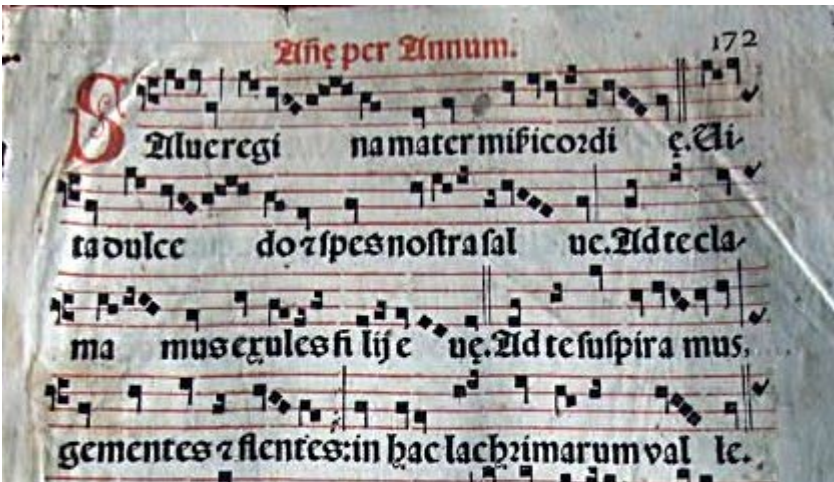 Añę per Annum. 172
SAlue regi na mater mis̃icoꝛdi ę. Ui-
ta dulce do ⁊ spes nostra sal ue. Ad te cla-
ma mus exules fi lij e uę. Ad te suspira mus,
gementes ⁊ flentes: in hac lachꝛimarum val le.